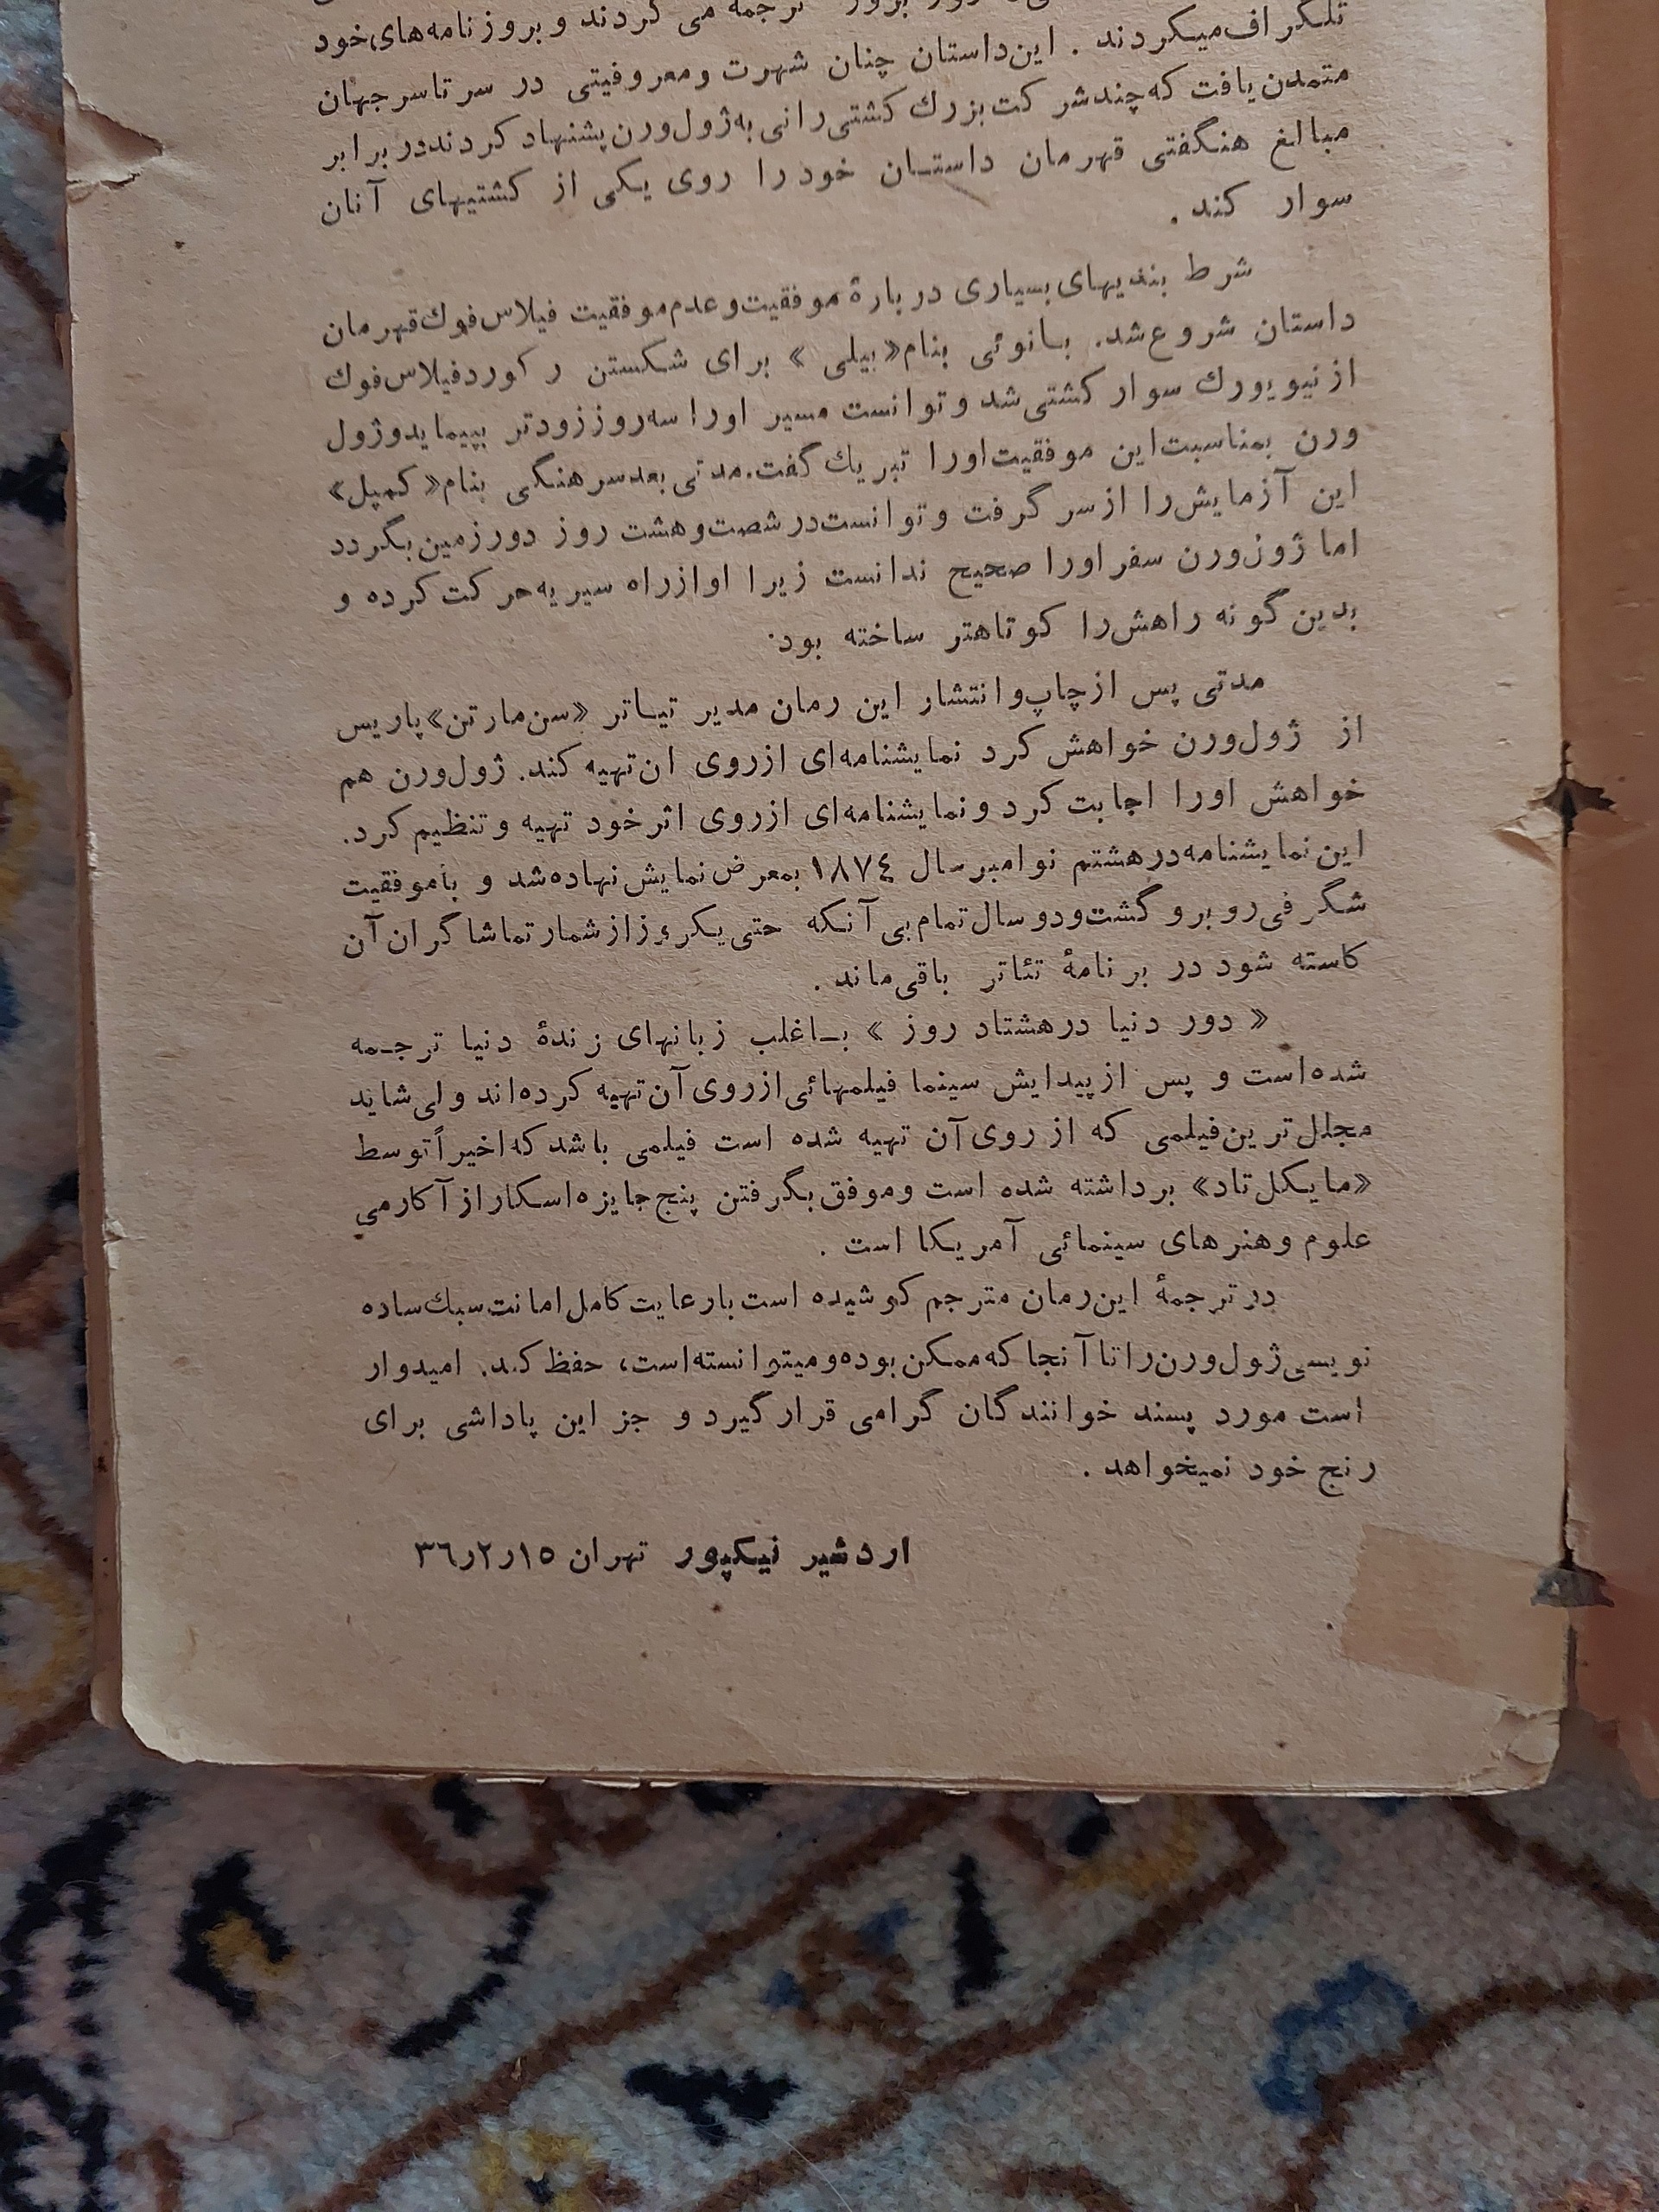 ترجمه می کردند و بروزنامه‌های خود
تلگراف میکردند . این داستان چنان شهرت و معروفیتی در سرتاسر جهان
متمدن یافت که چند شرکت بزرك کشتی‌رانی به ژول ورن پشنهاد کردند در برابر
مبالغ هنگفتی قهرمان داستان خود را روی یکی از کشتیهای آنان
سوار کند .
شرط بندیهای بسیاری در بارهٔ موفقیت و عدم موفقیت فیلاس فوك قهرمان
داستان شروع شد. بانوئی بنام «بیلی» برای شکستن رکورد فیلاس فوك
از نیویورك سوار کشتی شد و توانست مسیر اورا سه روز زودتر بپیماید و ژول
ورن بمناسبت این موفقیت اورا تبریك گفت. مدتی بعد سرهنگی بنام «کمپل»
این آزمایش را از سر گرفت و توانست در شصت و هشت روز دور زمین بگردد
اما ژون ورن سفر اورا صحیح ندانست زیرا او از راه سیریه حرکت کرده و
بدین گونه راهش را کوتاهتر ساخته بود.
مدتی پس از چاپ و انتشار این رمان مدیر تیاتر «سن مارتن» پاریس
از ژول ورن خواهش کرد نمایشنامه‌ای از روی ان تهیه کند. ژول ورن هم
خواهش اورا اجابت کرد و نمایشنامه‌ای از روی اثر خود تهیه و تنظیم کرد.
این نمایشنامه در هشتم نوامبر سال ١٨٧٤ بمعرض نمایش نهاده شد و با موفقیت
شگرفی روبرو گشت و دو سال تمام بی آنکه حتی یکروز از شمار تماشاگران آن
کاسته شود در برنامهٔ تئاتر باقی ماند .
« دور دنیا در هشتاد روز » باغلب زبانهای زندهٔ دنیا ترجمه
شده است و پس از پیدایش سینما فیلمهائی از روی آن تهیه کرده‌اند ولی شاید
مجلل ترین فیلمی که از روی آن تهیه شده است فیلمی باشد که اخیراً توسط
«مایکل تاد» برداشته شده است و موفق بگرفتن پنج جایزه اسکار از آکارمی
علوم و هنرهای سینمائی آمریکا است .
در ترجمهٔ این رمان مترجم کوشیده است با رعایت کامل امانت سبك ساده
نویسی ژول ورن را تا آنجا که ممکن بوده و میتوانسته است، حفظ کند. امیدوار
است مورد پسند خوانندگان گرامی قرار گیرد و جز این پاداشی برای
رنج خود نمیخواهد .
اردشیر نیکپور تهران ١٥ر٢ر٣٦